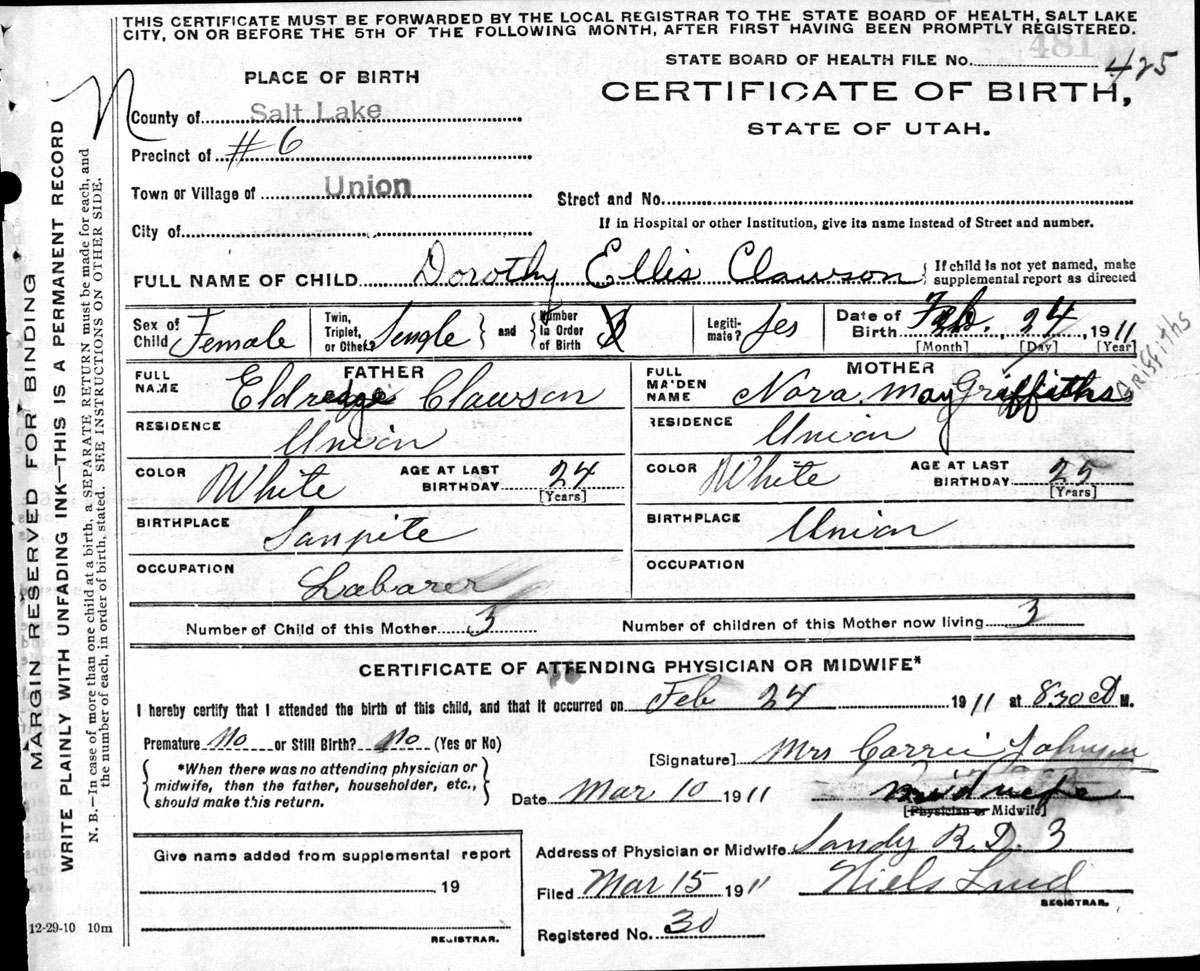 THIS CERTIFICATE MUST BE FORWARDED BY THE LOCAL REGISTRAR TO THE STATE BOARD OF HEALTH, SALT LAKE
CITY, ON OR BEFORE THE 5TH OF THE FOLLOWING MONTH, AFTER FIRST HAVING BEEN PROMPTLY REGISTERED.
481
STATE BOARD OF HEALTH FILE No. 425
PLACE OF BIRTH
CERTIFICATE OF BIRTH,
STATE OF UTAH.
County of Salt Lake
Precinct of #6
Town or Village of Union
Street and No.
City of
If in Hospital or other Institution, give its name instead of Street and number.
FULL NAME OF CHILD Dorothy Ellis Clawson { If child is not yet named, make supplemental report as directed
Sex of Child Female
Twin, Triplet, or Other? Single } and { Number in Order of Birth
Legiti-mate? Yes
Date of Birth Feb. 24 1911
[Month] [Day] [Year]
Griffiths
FATHER
FULL NAME Eldredge Clawson
RESIDENCE Union
COLOR White AGE AT LAST BIRTHDAY 24
[Years]
BIRTHPLACE Sanpite
OCCUPATION Labarer
MOTHER
FULL MAIDEN NAME Nora May Griffiths
RESIDENCE Union
COLOR White AGE AT LAST BIRTHDAY 25
[Years]
BIRTHPLACE Union
OCCUPATION
Number of Child of this Mother 3 Number of children of this Mother now living 3
CERTIFICATE OF ATTENDING PHYSICIAN OR MIDWIFE*
I hereby certify that I attended the birth of this child, and that it occurred on Feb 24 1911 at 8.30 A M.
Premature No or Still Birth? No (Yes or No)
[Signature] Mrs Carrie Johnson
{ *When there was no attending physician or
midwife, then the father, householder, etc.,
should make this return. }
Date Mar 10 1911 Midwife
[Physician or Midwife]
Give name added from supplemental report
19
REGISTRAR.
12-29-10 10m
Address of Physician or Midwife Sandy R.D. 3
Filed Mar 15 1911 Niels Lind
REGISTRAR.
Registered No. 30
MARGIN RESERVED FOR BINDING
WRITE PLAINLY WITH UNFADING INK—THIS IS A PERMANENT RECORD
N. B.—In case of more than one child at a birth, a SEPARATE RETURN must be made for each, and
the number of each, in order of birth, stated. SEE INSTRUCTIONS ON OTHER SIDE.